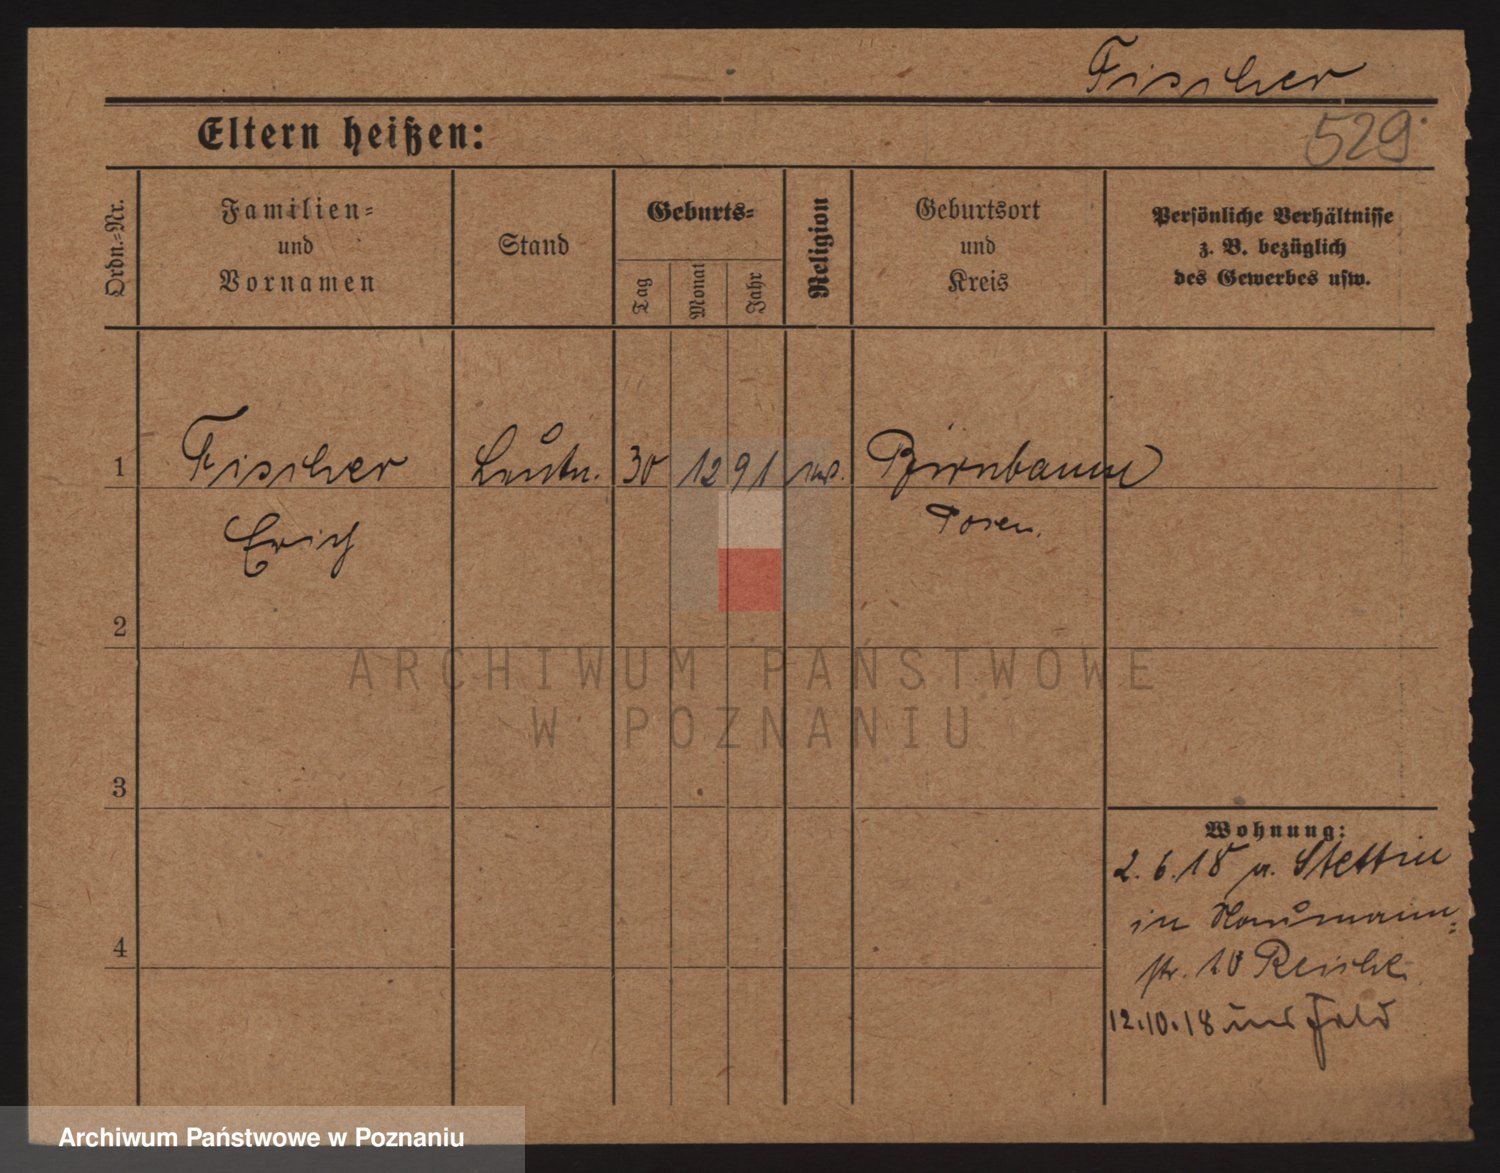 Fischer
529.
Eltern heißen:
Ordn.-Nr.
Familien-
und
Vornamen
Stand
Geburts-
Tag
Monat
Jahr
Religion
Geburtsort
und
Kreis
Persönliche Verhältnisse
z. B. bezüglich
des Gewerbes usw.
1 Fischer Leutn. 30 12 91 Birnbaum
Erich Posen.
2
3
4
Wohnung:
2. 6. 18 v. Stettin
in Naumann-
str. 10
12.10.18 ins Feld
ARCHIWUM PAŃSTWOWE
W POZNANIU
Archiwum Państwowe w Poznaniu